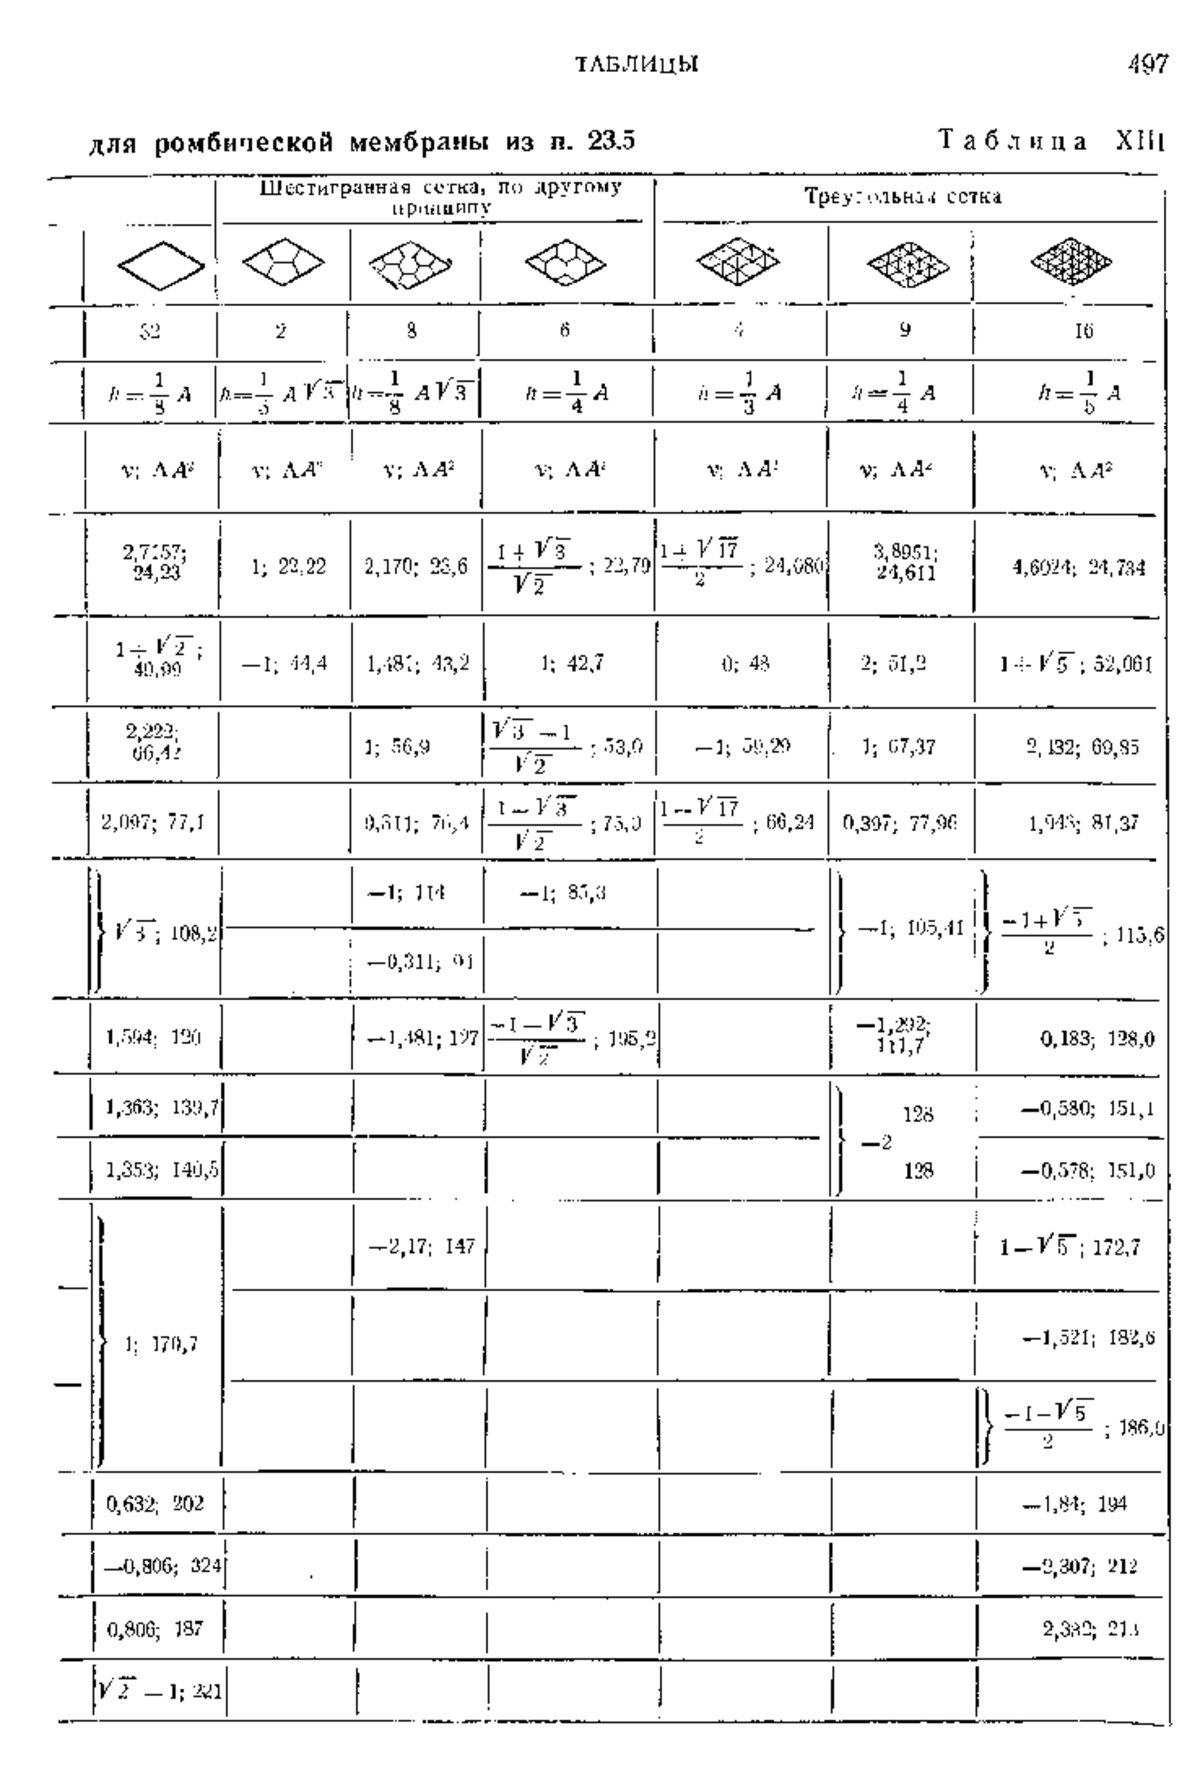 ТАБЛИЦЫ 497
для ромбической мембраны из п. 23.5 Таблица XIII
Шестигранная сетка, по другому принципу Треугольная сетка
32 2 8 6 4 9 16
h=1/8 A h= A√3 h=1/8 A√3 h=1/4 A h=1/3 A h=1/4 A h=1/5 A
ν; ΛA² ν; ΛA² ν; ΛA² ν; ΛA² ν; ΛA² ν; ΛA² ν; ΛA²
2,7157; 24,23 1; 22,22 2,170; 23,6 (1+√3)/√2; 22,79 (1+√17)/2; 24,080 3,8951; 24,611 4,6024; 24,734
1+√2; 49,99 —1; 44,4 1,481; 43,2 1; 42,7 0; 48 2; 51,2 1+√5; 52,061
2,222; 66,42 1; 56,9 (√3—1)/√2; 53,0 —1; 59,29 1; 67,37 2,132; 69,85
2,097; 77,1 0,311; 76,4 (1—√3)/√2; 75,0 (1—√17)/2; 66,24 0,397; 77,96 1,943; 81,37
√3; 108,2 —1; 114 —1; 85,3 —1; 105,41 (—1+√5)/2; 115,6
—0,311; 91
1,594; 120 —1,481; 127 (—1—√3)/√2; 105,2 —1,292; 111,7 0,183; 128,0
1,363; 139,7 128 —0,580; 151,1
—2
1,353; 140,5 128 —0,578; 151,0
—2,17; 147 1—√5; 172,7
1; 170,7 —1,521; 182,6
(—1—√5)/2; 186,0
0,632; 202 —1,84; 194
—0,806; 324 —2,307; 212
0,806; 187 2,382;
√2 — 1; 221